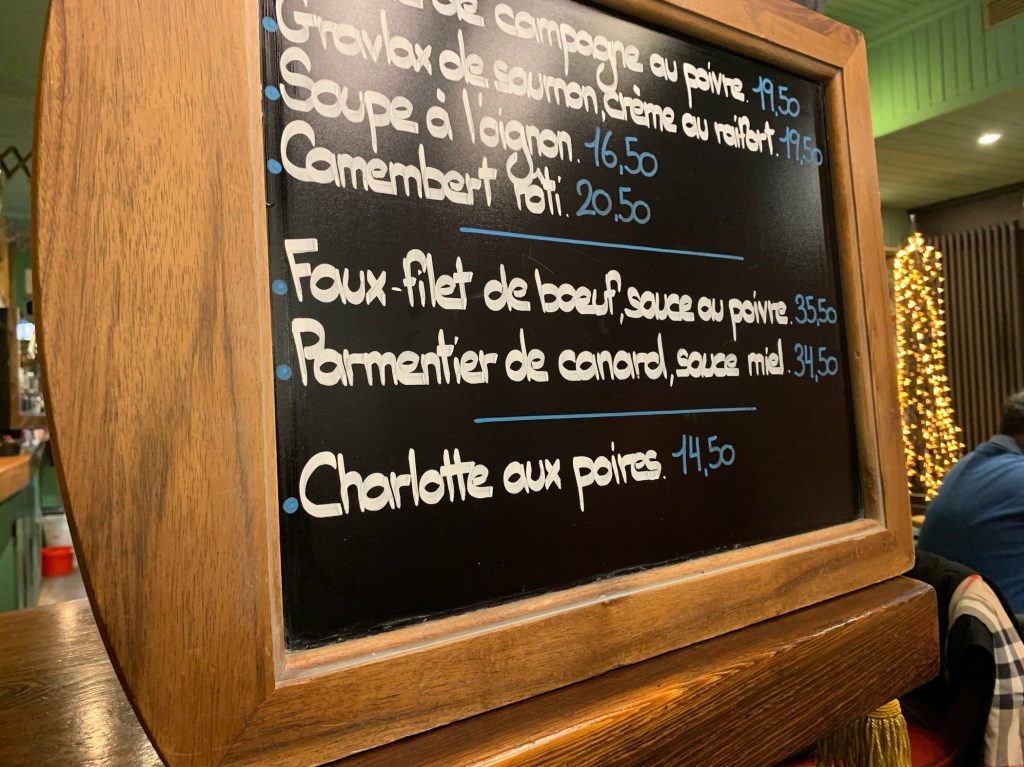 de campagne au poivre. 19,50
Gravlax de saumon, crème au raifort. 19,50
Soupe à l'oignon. 16,50
Camembert rôti. 20,50
Faux-filet de boeuf, sauce au poivre. 35,50
Parmentier de canard, sauce miel. 34,50
Charlotte aux poires. 14,50